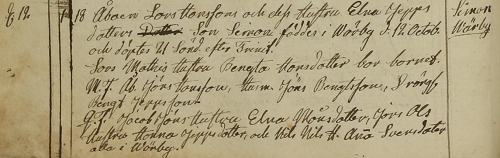 18 Åboen Lars Hanssons och dess Hustru Elna Jepps Simon
dotters Dotter Son Simon föddes i Wärby d. 12 Octob. Wärby
och döptes 21 Sönd. efter Trinit.
Lars Mathis Hustru Bengta Monsdotter bar barnet.
M. F. Åb. Jöns Hansson, Husm. Jöns Bengtsson,
Bengt Jeppsson.
Q. F. Jacob Jöns Hustru Elna Månsdotter, Jöns Ols
Hustru Hanna Jeppsdotter, och Nils Nils H. Anna Svensdotter
alla i Wärby.